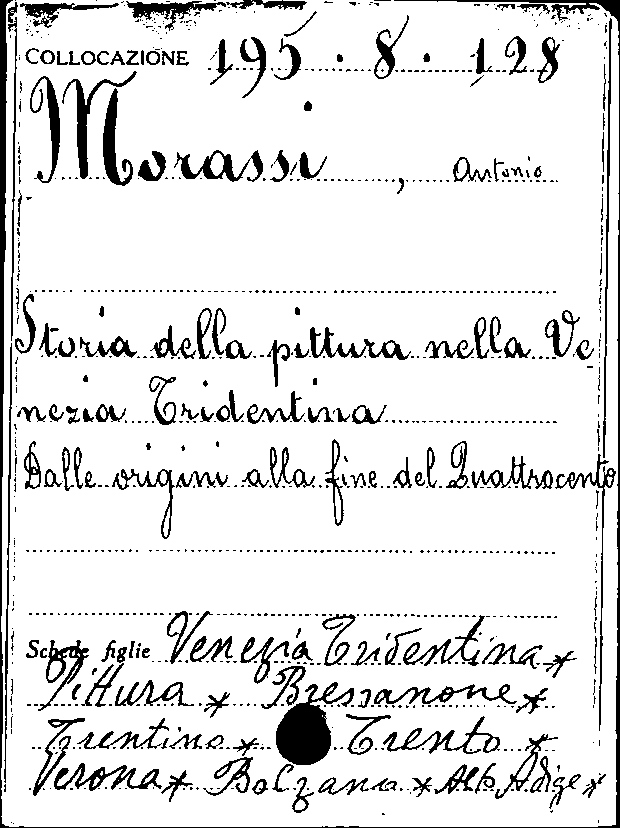 COLLOCAZIONE 195 · 8 · 128
Morassi , Antonio
Storia della pittura nella Ve
nezia Tridentina
Dalle origini alla fine del Quattrocento
Schede figlie Venezia Tridentina *
Pittura * Bressanone *
Trentino * Trento *
Verona * Bolzano * Alto Adige *